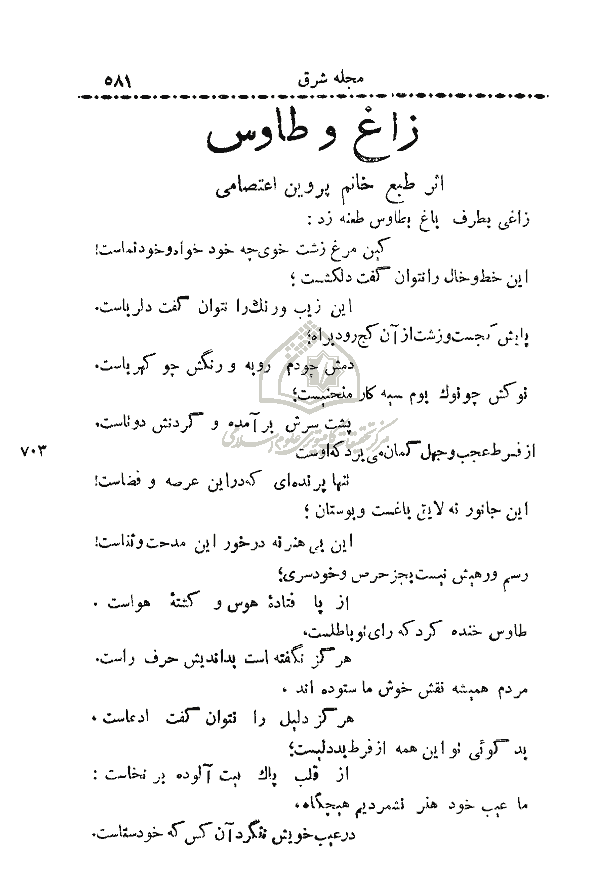 مجله شرق
۵۸۱
زاغ و طاوس
اثر طبع خانم پروین اعتصامی
زاغی بطرف باغ بطاوس طعنه زد :
کین مرغ زشت خوی چه خود خواه و خودنماست!
این خط و خال را نتوان گفت دلکشست ؛
این زیب و رنك را نتوان گفت دلرباست.
پایش کجست و زشت از آن کج رود براه؛
دمش چو دم روبه و رنگش چو کهرباست.
نوکش چو نوك بوم سیه کار منحنیست؛
پشت سرش برآمده و گردنش دوتاست.
از فرط عجب و جهل گمان می برد که اوست
۷۰۳
تنها پرنده‌ای که در این عرصه و فضاست!
این جانور نه لایق باغست و بوستان ؛
این بی هنر نه در خور این مدحت و ثناست!
رسم و رهیش نیست بجز حرص و خودسری؛
از پا فتادهٔ هوس و کشتهٔ هواست .
طاوس خنده کرد که رای تو باطلست.
هرگز نگفته است بداندیش حرف راست.
مردم همیشه نقش خوش ما ستوده اند .
هرگز دلیل را نتوان گفت ادعاست .
بد گوئی تو این همه از فرط بددلیست؛
از قلب پاك نیت آلوده بر نخاست :
ما عیب خود هنر نشمردیم هیچگاه.
در عیب خویش ننگرد آن کس که خودستاست.
مرکز تحقیقات کامپیوتری علوم اسلامی